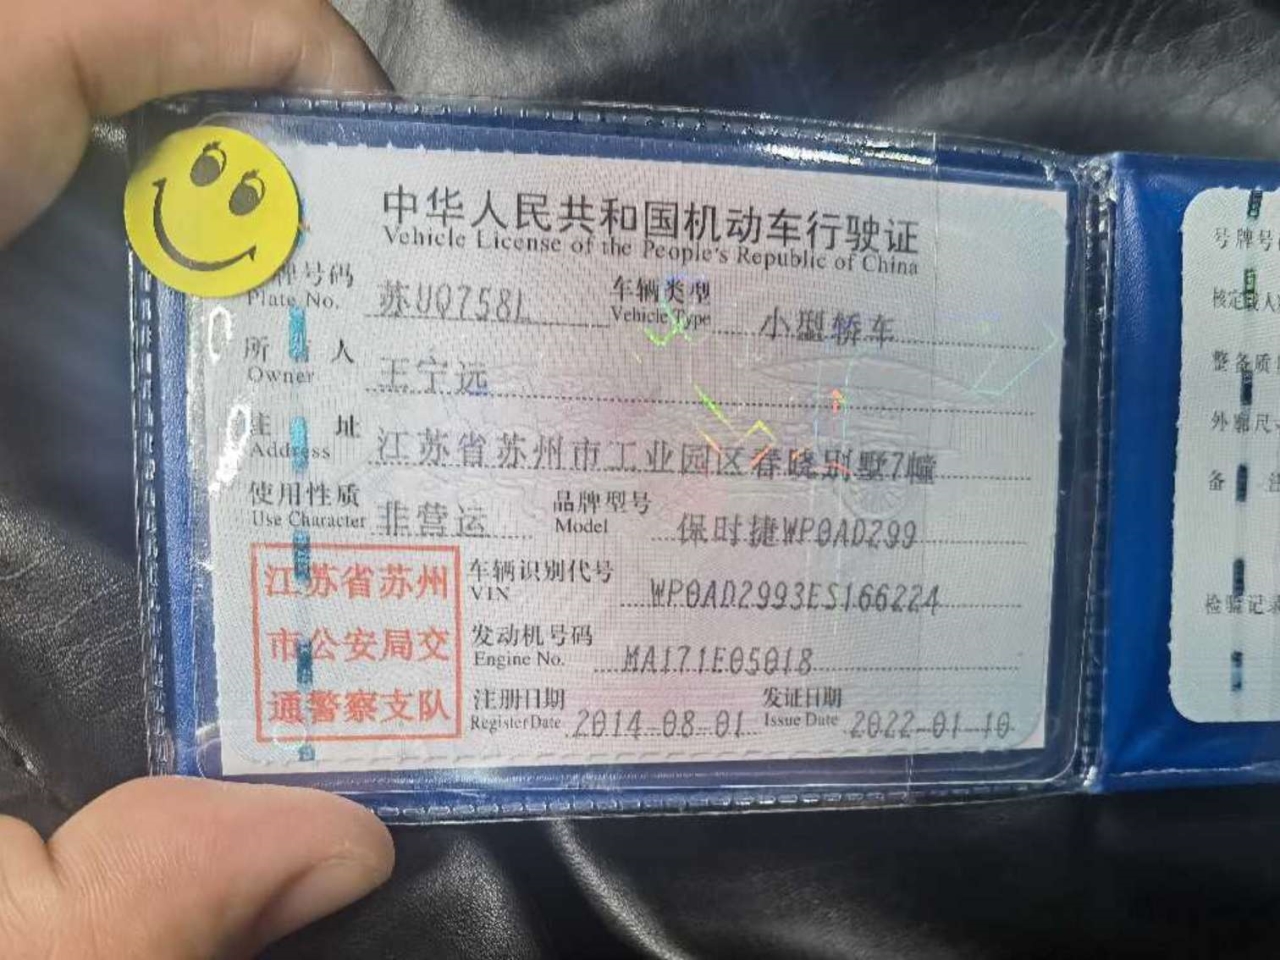 中华人民共和国机动车行驶证
Vehicle License of the People's Republic of China
牌号码 苏UQ758L 车辆类型 小型轿车
Plate No. Vehicle Type
所 人 王宁远
Owner
住 址 江苏省苏州市工业园区春晓别墅7幢
Address
使用性质 非营运 品牌型号 保时捷WP0AD299
Use Character Model
江苏省苏州
市公安局交
通警察支队
车辆识别代号 WP0AD2993ES166224
VIN
发动机号码 MA171E05018
Engine No.
注册日期 2014-08-01 发证日期 2022-01-10
Register Date Issue Date
号牌号
核定载人
整备质
外廓尺
备 注
检验记录